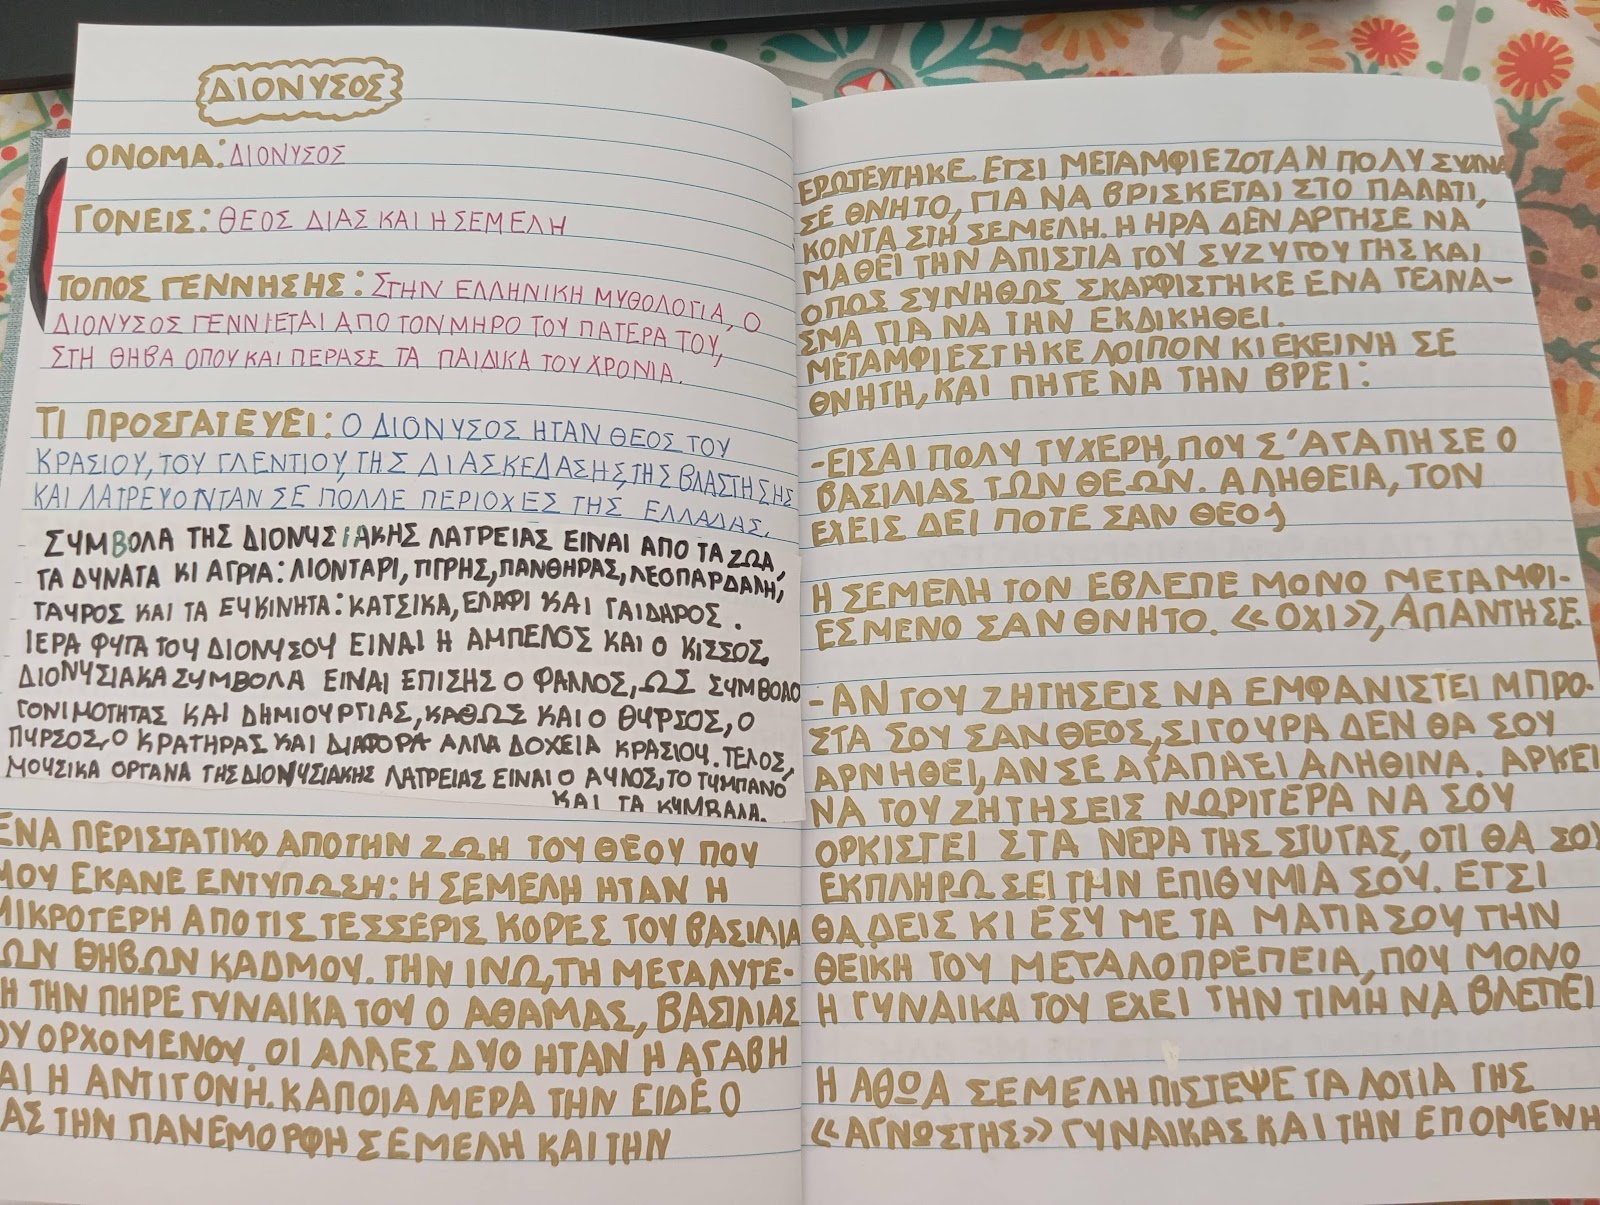 ΔΙΟΝΥΣΟΣ
ΟΝΟΜΑ: ΔΙΟΝΥΣΟΣ
ΓΟΝΕΙΣ: ΘΕΟΣ ΔΙΑΣ ΚΑΙ Η ΣΕΜΕΛΗ
ΤΟΠΟΣ ΓΕΝΝΗΣΗΣ: ΣΤΗΝ ΕΛΛΗΝΙΚΗ ΜΥΘΟΛΟΓΙΑ, Ο
ΔΙΟΝΥΣΟΣ ΓΕΝΝΙΕΤΑΙ ΑΠΟ ΤΟΝ ΜΗΡΟ ΤΟΥ ΠΑΤΕΡΑ ΤΟΥ,
ΣΤΗ ΘΗΒΑ ΟΠΟΥ ΚΑΙ ΠΕΡΑΣΕ ΤΑ ΠΑΙΔΙΚΑ ΤΟΥ ΧΡΟΝΙΑ.
ΤΙ ΠΡΟΣΤΑΤΕΥΕΙ: Ο ΔΙΟΝΥΣΟΣ ΗΤΑΝ ΘΕΟΣ ΤΟΥ
ΚΡΑΣΙΟΥ, ΤΟΥ ΓΛΕΝΤΙΟΥ, ΤΗΣ ΔΙΑΣΚΕΔΑΣΗΣ, ΤΗΣ ΒΛΑΣΤΗΣΗΣ
ΚΑΙ ΛΑΤΡΕΥΟΝΤΑΝ ΣΕ ΠΟΛΛΕ ΠΕΡΙΟΧΕΣ ΤΗΣ ΕΛΛΑΔΑΣ.
ΣΥΜΒΟΛΑ ΤΗΣ ΔΙΟΝΥΣΙΑΚΗΣ ΛΑΤΡΕΙΑΣ ΕΙΝΑΙ ΑΠΟ ΤΑ ΖΩΑ,
ΤΑ ΔΥΝΑΤΑ ΚΙ ΑΓΡΙΑ: ΛΙΟΝΤΑΡΙ, ΤΙΓΡΗΣ, ΠΑΝΘΗΡΑΣ, ΛΕΟΠΑΡΔΑΛΗ,
ΤΑΥΡΟΣ ΚΑΙ ΤΑ ΕΥΚΙΝΗΤΑ: ΚΑΤΣΙΚΑ, ΕΛΑΦΙ ΚΑΙ ΓΑΙΔΑΡΟΣ.
ΙΕΡΑ ΦΥΤΑ ΤΟΥ ΔΙΟΝΥΣΟΥ ΕΙΝΑΙ Η ΑΜΠΕΛΟΣ ΚΑΙ Ο ΚΙΣΣΟΣ.
ΔΙΟΝΥΣΙΑΚΑ ΣΥΜΒΟΛΑ ΕΙΝΑΙ ΕΠΙΣΗΣ Ο ΦΑΛΛΟΣ, ΩΣ ΣΥΜΒΟΛΟ
ΓΟΝΙΜΟΤΗΤΑΣ ΚΑΙ ΔΗΜΙΟΥΡΓΙΑΣ, ΚΑΘΩΣ ΚΑΙ Ο ΘΥΡΣΟΣ, Ο
ΠΥΡΣΟΣ, Ο ΚΡΑΤΗΡΑΣ ΚΑΙ ΔΙΑΦΟΡΑ ΑΛΛΑ ΔΟΧΕΙΑ ΚΡΑΣΙΟΥ. ΤΕΛΟΣ,
ΜΟΥΣΙΚΑ ΟΡΓΑΝΑ ΤΗΣ ΔΙΟΝΥΣΙΑΚΗΣ ΛΑΤΡΕΙΑΣ ΕΙΝΑΙ Ο ΑΥΛΟΣ, ΤΟ ΤΥΜΠΑΝΟ
ΚΑΙ ΤΑ ΚΥΜΒΑΛΑ.
ΕΝΑ ΠΕΡΙΣΤΑΤΙΚΟ ΑΠΟ ΤΗΝ ΖΩΗ ΤΟΥ ΘΕΟΥ ΠΟΥ
ΜΟΥ ΕΚΑΝΕ ΕΝΤΥΠΩΣΗ: Η ΣΕΜΕΛΗ ΗΤΑΝ Η
ΜΙΚΡΟΤΕΡΗ ΑΠΟ ΤΙΣ ΤΕΣΣΕΡΙΣ ΚΟΡΕΣ ΤΟΥ ΒΑΣΙΛΙΑ
ΩΝ ΘΗΒΩΝ ΚΑΔΜΟΥ. ΤΗΝ ΙΝΩ, ΤΗ ΜΕΓΑΛΥΤΕ-
Η ΤΗΝ ΠΗΡΕ ΓΥΝΑΙΚΑ ΤΟΥ Ο ΑΘΑΜΑΣ, ΒΑΣΙΛΙΑΣ
ΟΥ ΟΡΧΟΜΕΝΟΥ. ΟΙ ΑΛΛΕΣ ΔΥΟ ΗΤΑΝ Η ΑΓΑΒΗ
ΑΙ Η ΑΝΤΙΓΟΝΗ. ΚΑΠΟΙΑ ΜΕΡΑ ΤΗΝ ΕΙΔΕ Ο
ΑΣ ΤΗΝ ΠΑΝΕΜΟΡΦΗ ΣΕΜΕΛΗ ΚΑΙ ΤΗΝ
ΕΡΩΤΕΥΤΗΚΕ. ΕΤΣΙ ΜΕΤΑΜΦΙΕΖΟΤΑΝ ΠΟΛΥ ΣΥΧΝΑ
ΣΕ ΘΝΗΤΟ, ΓΙΑ ΝΑ ΒΡΙΣΚΕΤΑΙ ΣΤΟ ΠΑΛΑΤΙ,
ΚΟΝΤΑ ΣΤΗ ΣΕΜΕΛΗ. Η ΗΡΑ ΔΕΝ ΑΡΓΗΣΕ ΝΑ
ΜΑΘΕΙ ΤΗΝ ΑΠΙΣΤΙΑ ΤΟΥ ΣΥΖΥΓΟΥ ΤΗΣ ΚΑΙ
ΟΠΩΣ ΣΥΝΗΘΩΣ ΣΚΑΡΦΙΣΤΗΚΕ ΕΝΑ ΤΕΧΝΑ-
ΣΜΑ ΓΙΑ ΝΑ ΤΗΝ ΕΚΔΙΚΗΘΕΙ.
ΜΕΤΑΜΦΙΕΣΤΗΚΕ ΛΟΙΠΟΝ ΚΙ ΕΚΕΙΝΗ ΣΕ
ΘΝΗΤΗ, ΚΑΙ ΠΗΓΕ ΝΑ ΤΗΝ ΒΡΕΙ:
-ΕΙΣΑΙ ΠΟΛΥ ΤΥΧΕΡΗ, ΠΟΥ Σ'ΑΓΑΠΗΣΕ Ο
ΒΑΣΙΛΙΑΣ ΤΩΝ ΘΕΩΝ. ΑΛΗΘΕΙΑ, ΤΟΝ
ΕΧΕΙΣ ΔΕΙ ΠΟΤΕ ΣΑΝ ΘΕΟ;
Η ΣΕΜΕΛΗ ΤΟΝ ΕΒΛΕΠΕ ΜΟΝΟ ΜΕΤΑΜΦΙ-
ΕΣΜΕΝΟ ΣΑΝ ΘΝΗΤΟ. «ΟΧΙ», ΑΠΑΝΤΗΣΕ.
-ΑΝ ΤΟΥ ΖΗΤΗΣΕΙΣ ΝΑ ΕΜΦΑΝΙΣΤΕΙ ΜΠΡΟ-
ΣΤΑ ΣΟΥ ΣΑΝ ΘΕΟΣ, ΣΙΓΟΥΡΑ ΔΕΝ ΘΑ ΣΟΥ
ΑΡΝΗΘΕΙ, ΑΝ ΣΕ ΑΓΑΠΑΕΙ ΑΛΗΘΙΝΑ. ΑΡΚΕΙ
ΝΑ ΤΟΥ ΖΗΤΗΣΕΙΣ ΝΩΡΙΤΕΡΑ ΝΑ ΣΟΥ
ΟΡΚΙΣΤΕΙ ΣΤΑ ΝΕΡΑ ΤΗΣ ΣΤΥΓΑΣ, ΟΤΙ ΘΑ ΣΟΥ
ΕΚΠΛΗΡΩΣΕΙ ΤΗΝ ΕΠΙΘΥΜΙΑ ΣΟΥ. ΕΤΣΙ
ΘΑ ΔΕΙΣ ΚΙ ΕΣΥ ΜΕ ΤΑ ΜΑΤΙΑ ΣΟΥ ΤΗΝ
ΘΕΙΚΗ ΤΟΥ ΜΕΓΑΛΟΠΡΕΠΕΙΑ, ΠΟΥ ΜΟΝΟ
Η ΓΥΝΑΙΚΑ ΤΟΥ ΕΧΕΙ ΤΗΝ ΤΙΜΗ ΝΑ ΒΛΕΠΕΙ
Η ΑΘΩΑ ΣΕΜΕΛΗ ΠΙΣΤΕΨΕ ΤΑ ΛΟΓΙΑ ΤΗΣ
«ΑΓΝΩΣΤΗΣ» ΓΥΝΑΙΚΑΣ ΚΑΙ ΤΗΝ ΕΠΟΜΕΝΗ